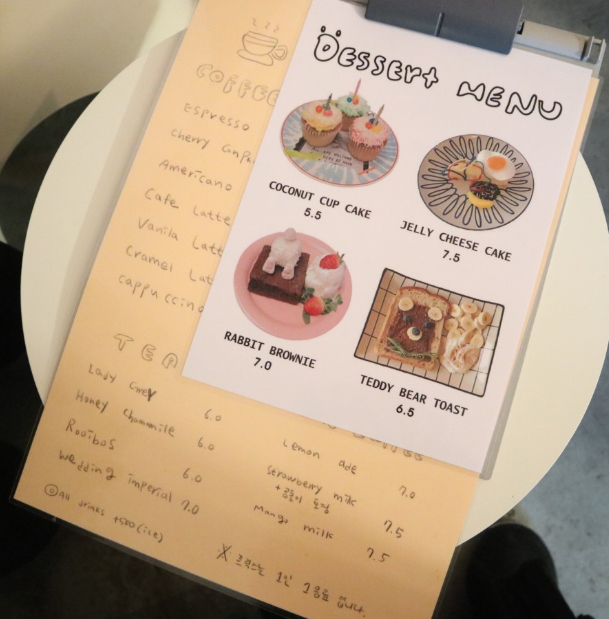 DESSERT MENU
COCONUT CUP CAKE
5.5
JELLY CHEESE CAKE
7.5
RABBIT BROWNIE
7.0
TEDDY BEAR TOAST
6.5
COFFEE
Espresso
Cherry
Americano
Cafe Latte
Vanila Latt
Cramel Lat
cappuccino
TEA
Lady Grey
Honey chamomile 6.0
Rooibos 6.0
Wedding imperial 6.0
7.0
Lemon ade
Strawberry milk 7.0
Mango milk 7.5
7.5
◎ All drinks +500 (ice)
1인 1음료 입니다.